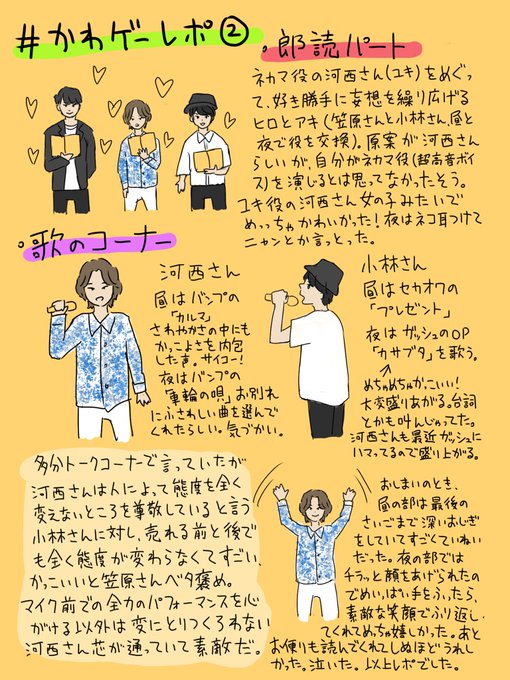 #かわゲーレポ②
・朗読パート
ネカマ役の河西さん(ユキ)をめぐっ
て、好き勝手に妄想を繰り広げる
ヒロとアキ(笠原さんと小林さん昼と
夜で役を交換)。原案が河西さん
らしいが、自分がネカマ役(超高音ボイ
ス)を演じるとは思ってなかったそう。
ユキ役の河西さん女の子みたいで
めっちゃかわいかった!夜はネコ耳つけて
ニャンとか言っとった。
・歌のコーナー
河西さん
昼はバンプの
「カルマ」
さわやかさの中にも
かっこよさを内包
した声。サイコー!
夜はバンプの
「車輪の唄」お別れ
にふさわしい曲を選んで
くれたらしい。気づかい。
小林さん
昼はセカオワの
「プレゼント」
夜はガッシュのOP
「カサブタ」を歌う。
めちゃめちゃかっこいい!
大変盛りあがる。台詞
とかも叫んじゃってた。
河西さんも最近ガッシュに
ハマってるので盛り上がる。
多分トークコーナーで言っていたが
河西さんは人によって態度を全く
変えないところを尊敬していると言う
小林さんに対し、売れる前と後で
も全く態度が変わらなくてすごい、
かっこいいと笠原さんベタ褒め。
マイク前での全力のパフォーマンスを心
がける以外は変にとりつくろわない
河西さん芯が通っていて素敵だ。
おしまいのとき、
昼の部は最後の
さいごまで深いおじぎ
をしていてすごくていねい
だった。夜の部では
チラッと顔をあげられたの
でめいっぱい手をふったら、
素敵な笑顔でふり返し
てくれてめっちゃ嬉しかった。あと
お便りも読んでくれてしぬほどうれし
かった。泣いた。以上レポでした。